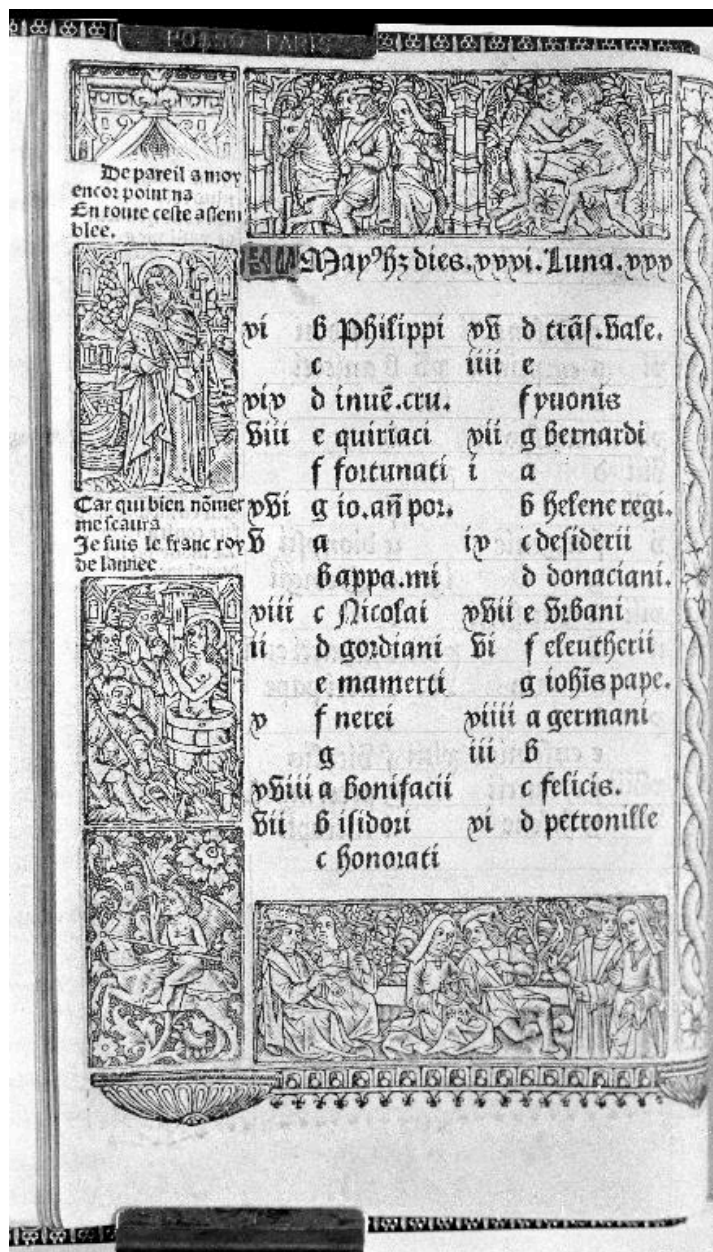 De pareil a moy
encor point na
En toute ceste assem
blee.
Car qui bien nõmer
me scaura
Je suis le franc roy
de lannee
Mayꝰ hz dies.xxxi. Luna.xxx
xi b Philippi
c
xix d inuẽ.cru.
viii e quiriaci
f fortunati
xvi g io.añ por.
v a
b appa.mi
xiii c Nicolai
ii d gordiani
e mamerti
x f nerei
g
xviii a bonifacii
vii b isidori
c honorati
xv d trãs.vale.
iiii e
f yuonis
xii g bernardi
i a
b helene regi.
ix c desiderii
d donaciani.
xvii e vrbani
vi f eleutherii
g iohĩs pape.
xiiii a germani
iii b
c felicis.
xi d petronille